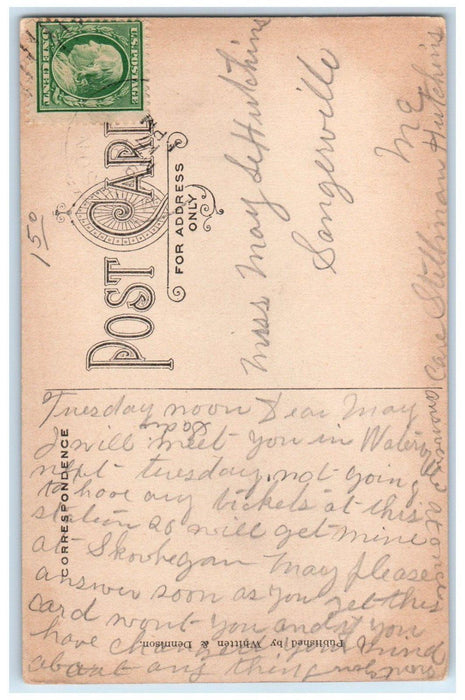 U.S. POSTAGE
ONE CENT
POST CARD
FOR ADDRESS
ONLY
15.0
Miss May L Hutchins
Sangerville
Me
Care Stillman Hutchins
CORRESPONDENCE
Tuesday noon Dear May
I will meet you in
next tuesday, not going
to have any tickets at this
station so will get mine
at Skowhegan May please
answer soon as you get this
card wont you and if you
have changed your mind
about any thing
Published by Whitten & Dennison.